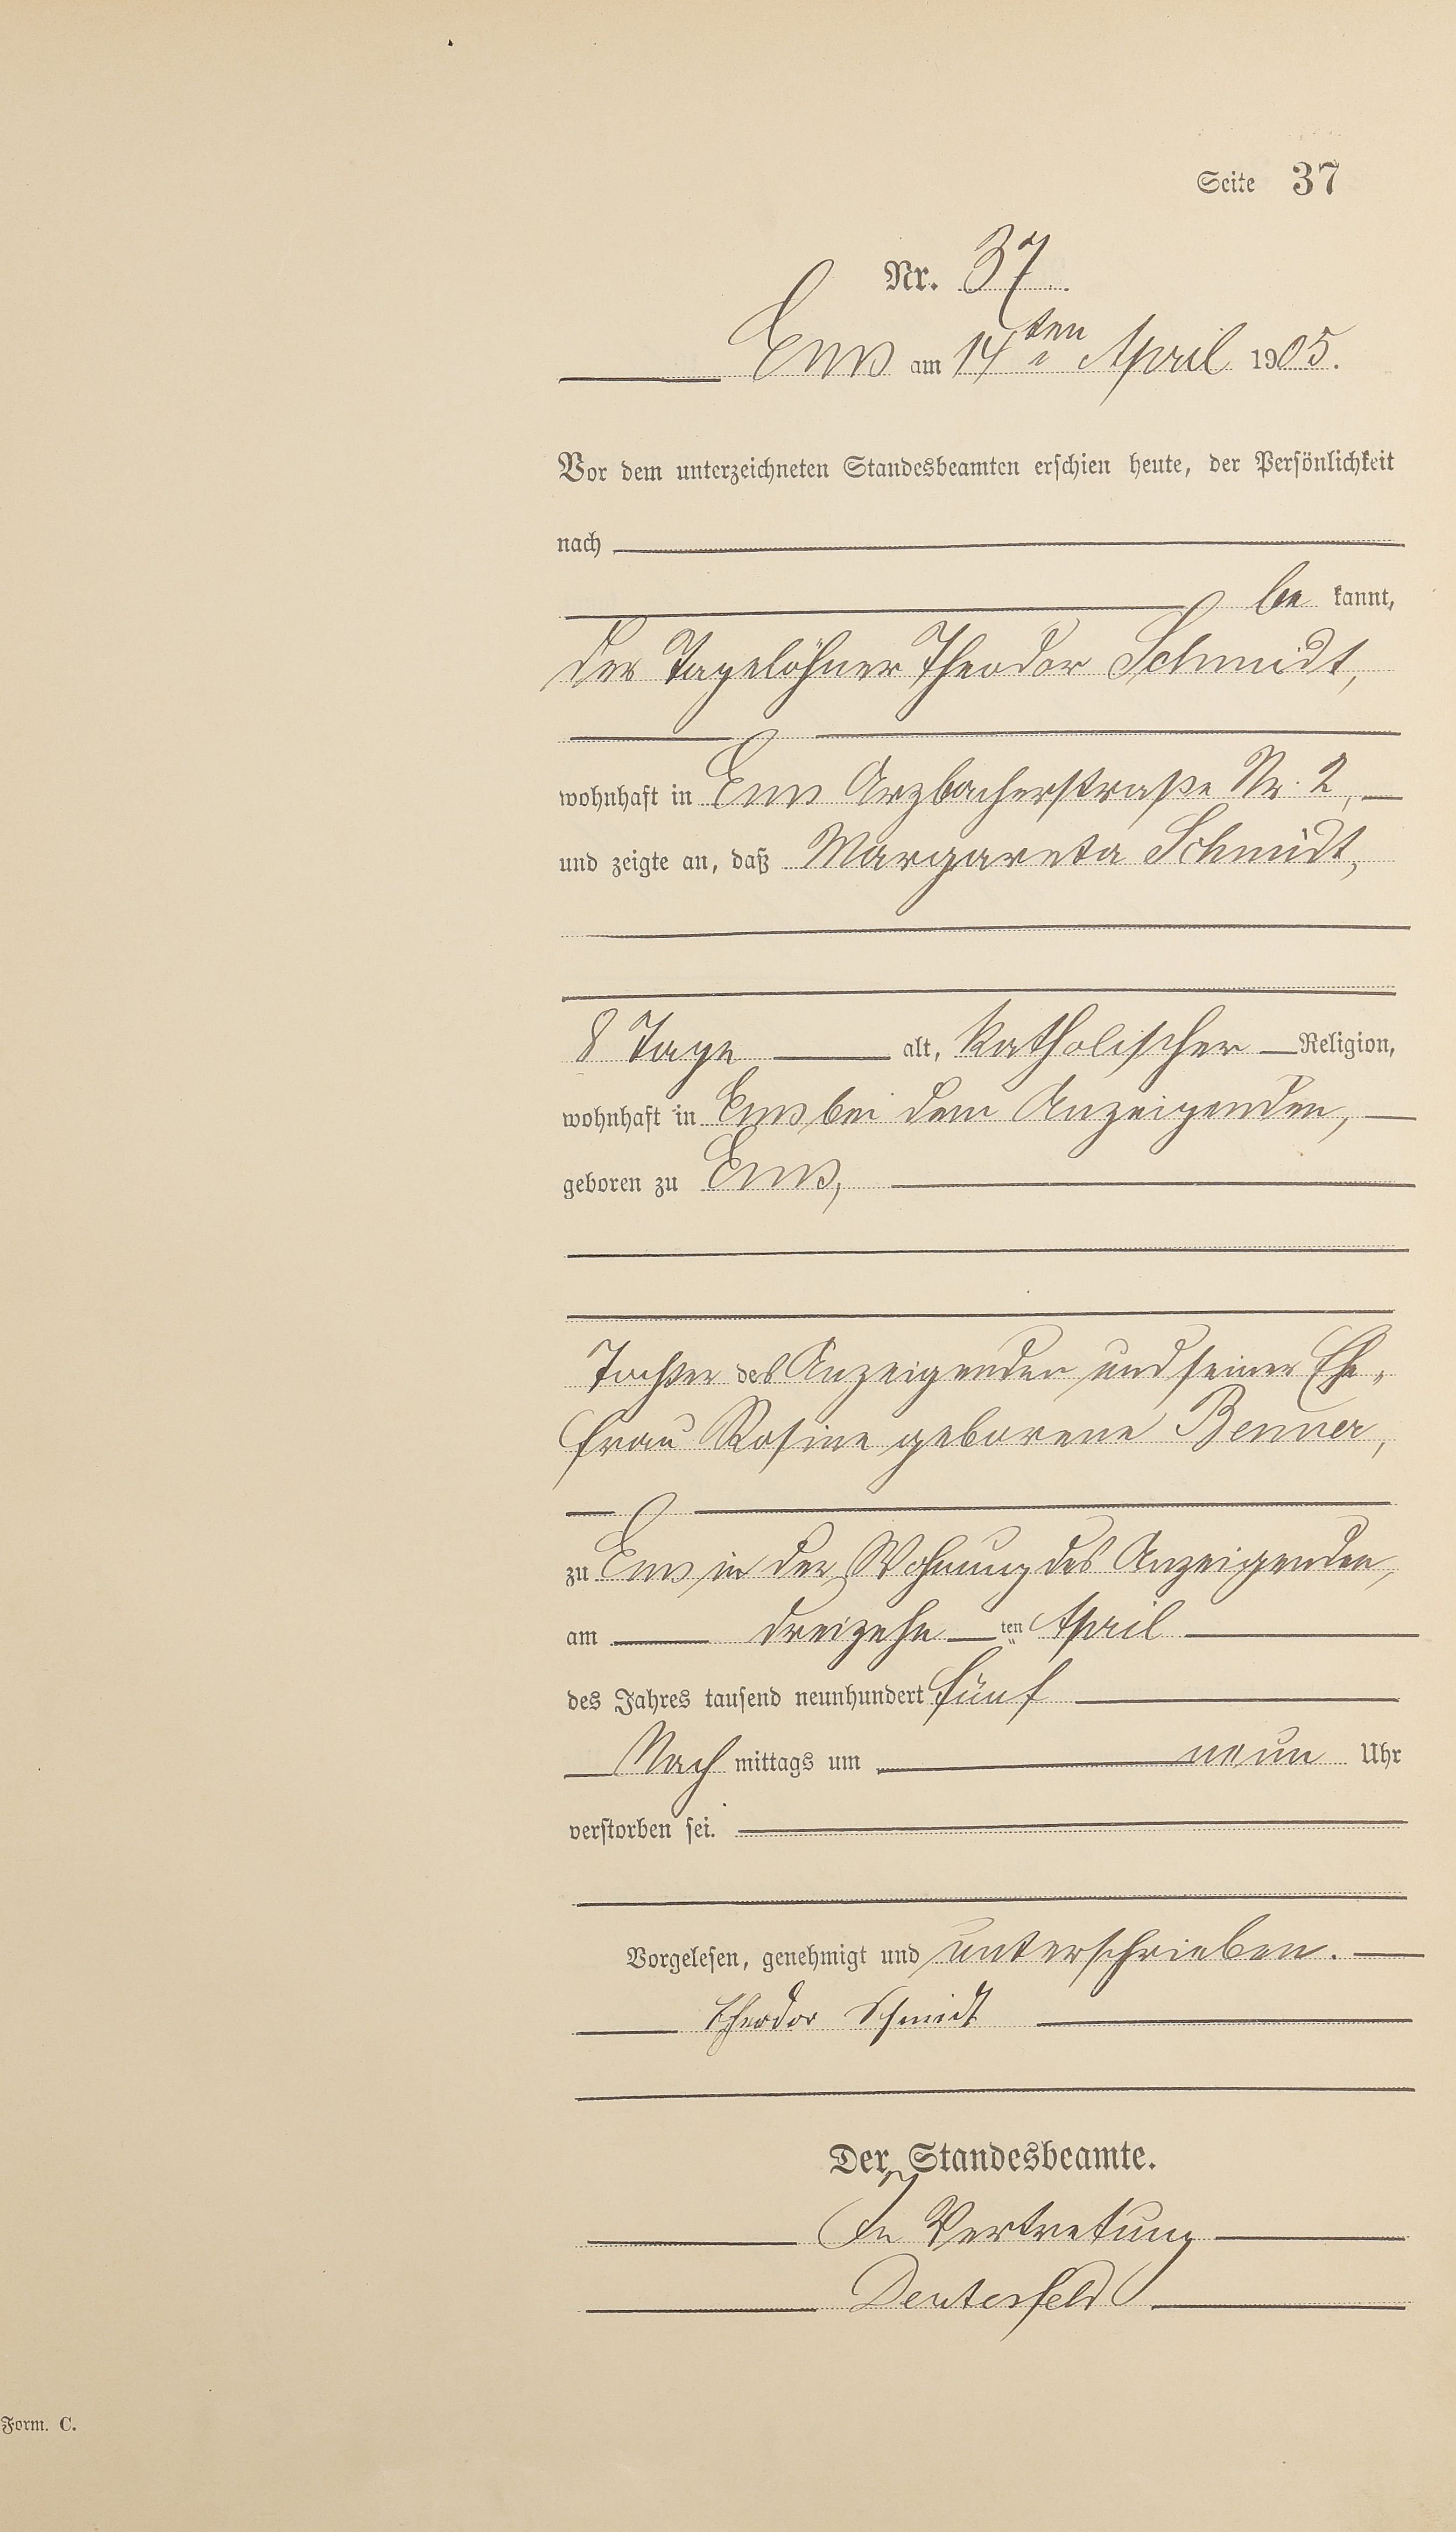 Seite 37
Nr. 37
Ems am 14ten April 1905.
Vor dem unterzeichneten Standesbeamten erschien heute, der Persönlichkeit
nach
be kannt,
der Tagelöhner Theodor Schmidt,
wohnhaft in Ems Arzbacherstraße Nr. 2,
und zeigte an, daß Margareta Schmidt,
8 Tage alt, katholischer Religion,
wohnhaft in Ems bei dem Anzeigenden,
geboren zu Ems,
Tochter des Anzeigenden und seiner Ehe-
frau Rosine geborene Benner,
zu Ems in der Wohnung des Anzeigenden,
am dreizehn ten April
des Jahres tausend neunhundert fünf
Nach mittags um neun Uhr
verstorben sei.
Vorgelesen, genehmigt und unterschrieben.
Theodor Schmidt
Der Standesbeamte.
In Vertretung
Form. C.